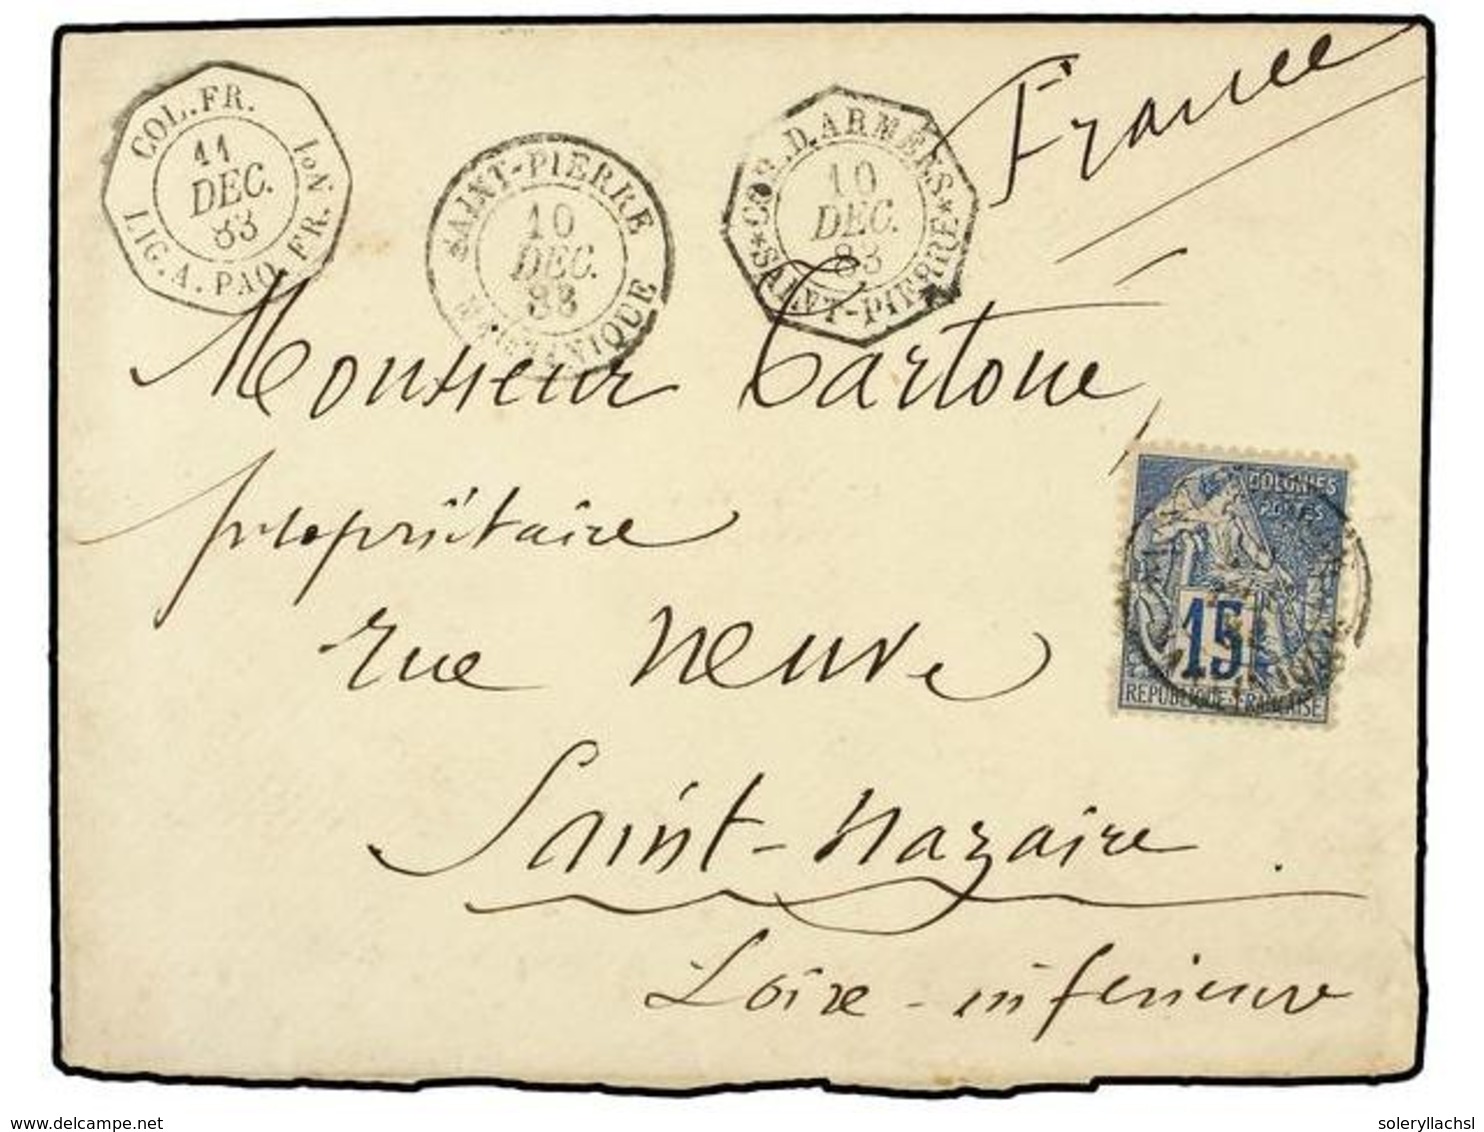 France
COL. FR.
11
DEC.
83
LIG. A. PAQ. FR. Nº 1
SAINT-PIERRE
10
DEC.
83
MARTINIQUE
COR. D. ARMÉES
10
DEC.
83
SAINT-PIERRE
Monsieur Cartoue,
propriétaire
rue neuve
Saint-Nazaire.
Loire-inférieure
COLONIES
POSTES
15
REPUBLIQUE-FRANCAISE
soleryllachsl